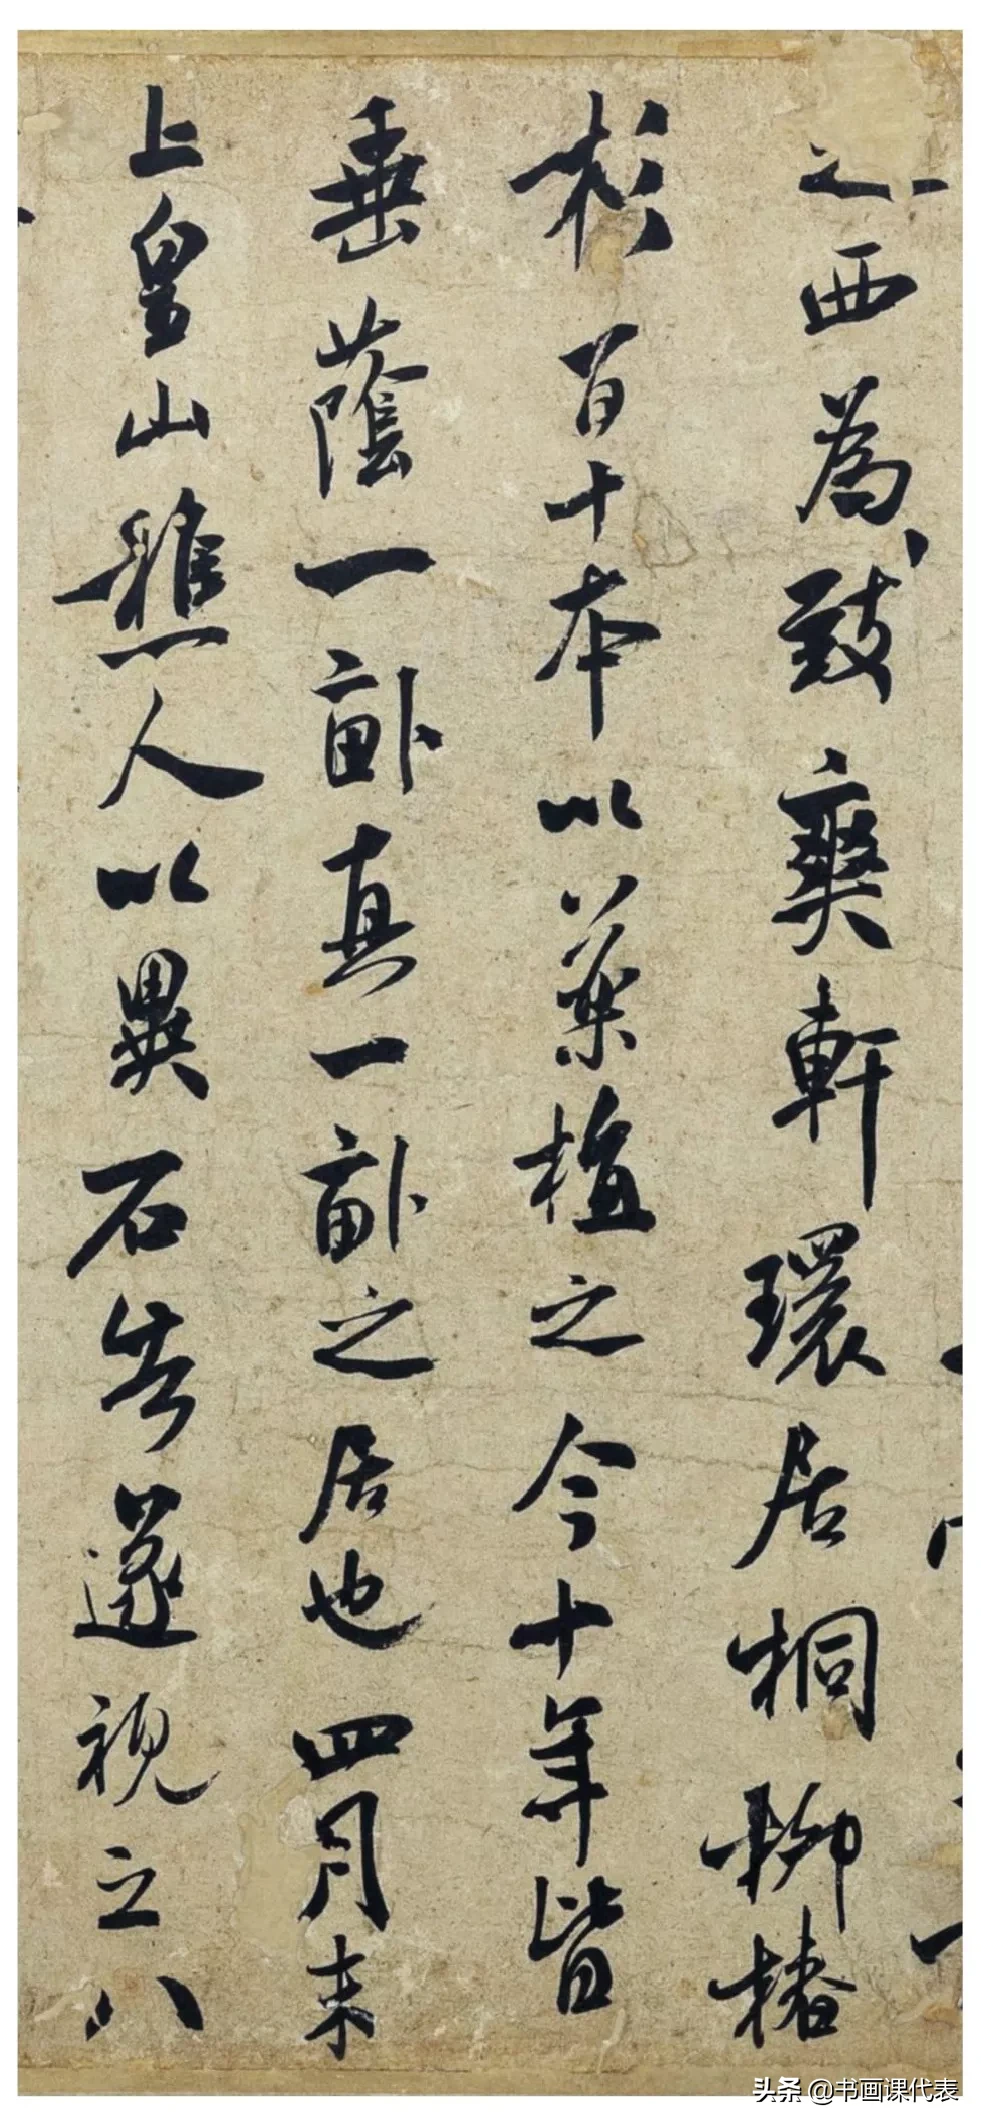 之西為致爽軒環居桐柳椿
杉百十本以藥植之今十年皆
垂蔭一畝真一畝之居也四月末
上皇山樵人以異石告遂視之八
头条 @书画课代表